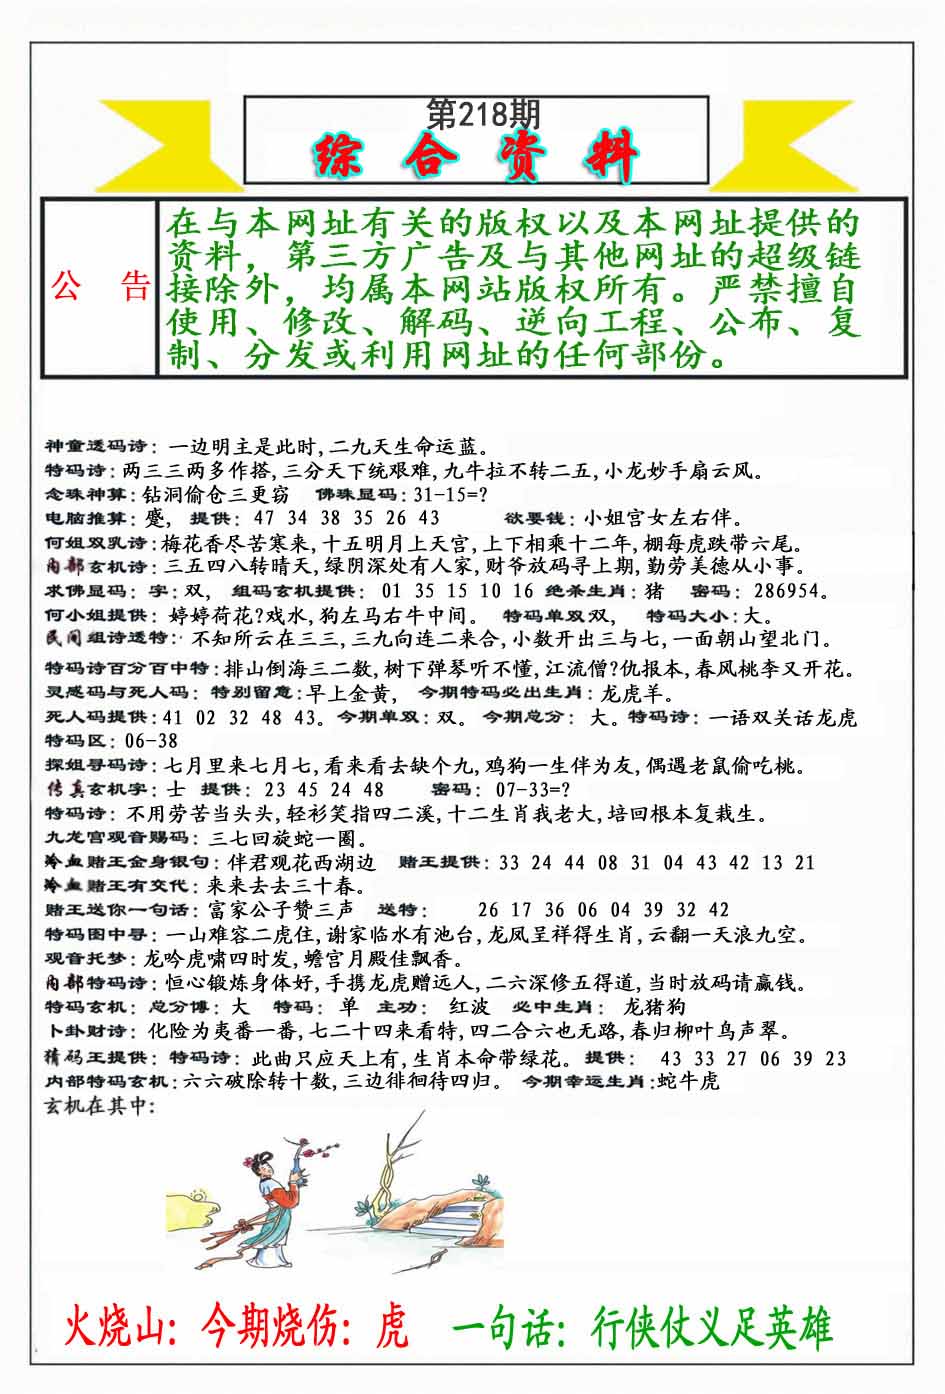 第218期
综合资料
公 告
在与本网址有关的版权以及本网址提供的
资料，第三方广告及与其他网址的超级链
接除外，均属本网站版权所有。严禁擅自
使用、修改、解码、逆向工程、公布、复
制、分发或利用网址的任何部份。
神童透码诗：一边明主是此时,二九天生命运蓝。
特码诗：两三三两多作搭,三分天下统艰难,九牛拉不转二五,小龙妙手扇云风。
念珠神算：钻洞偷仓三更窃 佛珠显码：31-15=?
电脑推算：蹙, 提供：47 34 38 35 26 43 欲要钱：小姐宫女左右伴。
何姐双乳诗：梅花香尽苦寒来,十五明月上天宫,上下相乘十二年,棚每虎跌带六尾。
内部玄机诗：三五四八转晴天,绿阴深处有人家,财爷放码寻上期,勤劳美德从小事。
求佛显码：字：双, 组码玄机提供：01 35 15 10 16 绝杀生肖：猪 密码：286954。
何小姐提供：婷婷荷花?戏水,狗左马右牛中间。 特码单双双, 特码大小：大。
民间组诗透特：不知所云在三三,三九向连二来合,小数开出三与七,一面朝山望北门。
特码诗百分百中特：排山倒海三二数,树下弹琴听不懂,江流僧?仇报本,春风桃李又开花。
灵感码与死人码：特别留意：早上金黄, 今期特码必出生肖：龙虎羊。
死人码提供：41 02 32 48 43。今期单双：双。 今期总分： 大。特码诗：一语双关话龙虎
特码区：06-38
探姐寻码诗：七月里来七月七,看来看去缺个九,鸡狗一生伴为友,偶遇老鼠偷吃桃。
传真玄机字：士 提供：23 45 24 48 密码：07-33=?
特码诗：不用劳苦当头头,轻衫笑指四二溪,十二生肖我老大,培回根本复栽生。
九龙宫观音赐码：三七回旋蛇一圈。
冷血赌王金身银句：伴君观花西湖边 赌王提供：33 24 44 08 31 04 43 42 13 21
冷血赌王有交代：来来去去三十春。
赌王送你一句话：富家公子赞三声 送特： 26 17 36 06 04 39 32 42
特码图中寻：一山难容二虎住,谢家临水有池台,龙凤呈祥得生肖,云翻一天浪九空。
观音托梦：龙吟虎啸四时发,蟾宫月殿佳飘香。
内部特码诗：恒心锻炼身体好,手携龙虎赠远人,二六深修五得道,当时放码请赢钱。
特码玄机：总分博：大 特码： 单 主功： 红波 必中生肖： 龙猪狗
卜卦财诗：化险为夷番一番,七二十四来看特,四二合六也无路,春归柳叶鸟声翠。
猜码王提供：特码诗：此曲只应天上有,生肖本命带绿花。 提供： 43 33 27 06 39 23
内部特码玄机：六六破除转十数,三边徘徊待四归。 今期幸运生肖:蛇牛虎
玄机在其中：
火烧山：今期烧伤：虎 一句话：行侠仗义足英雄